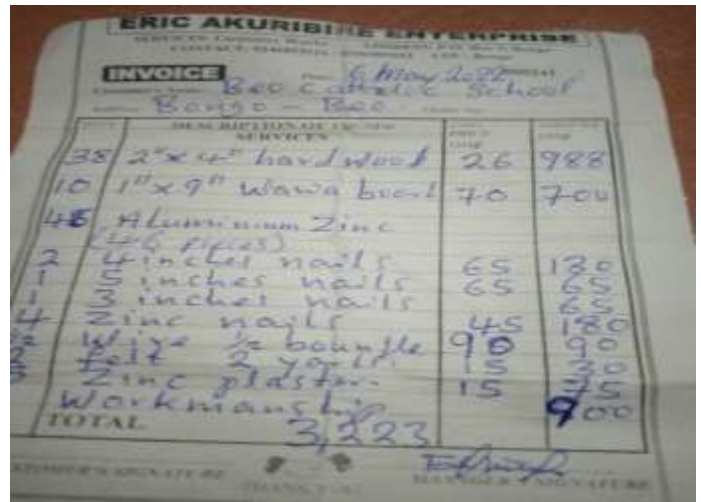 ERIC AKURIBIRE ENTERPRISE
INVOICE 6 May 2022
Boo Catholic School
Bongo - Boo
DESCRIPTION OF
SERVICES
38 2" x 4" hard wood 26 988
10 1" x 9" Wawa board 70 700
46 Aluminium Zinc
(46 Pieces)
2 4 inches nails 65 130
1 5 inches nails 65 65
1 3 inches nails 65
4 Zinc nails 45 180
½ Wire ½ boundle 90 90
2 Felt 2 yards 15 30
5 Zinc plaster 15 75
Workmanship 900
TOTAL 3,223
MANAGER'S SIGNATURE